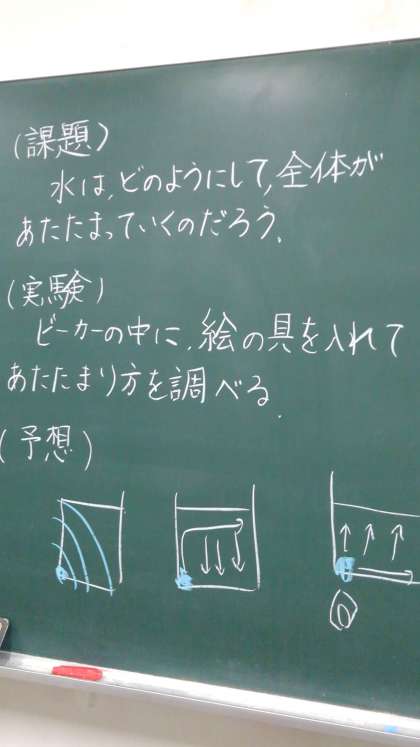 (課題)
水は、どのようにして、全体が
あたたまっていくのだろう。
(実験)
ビーカーの中に、絵の具を入れて
あたたまり方を調べる。
(予想)